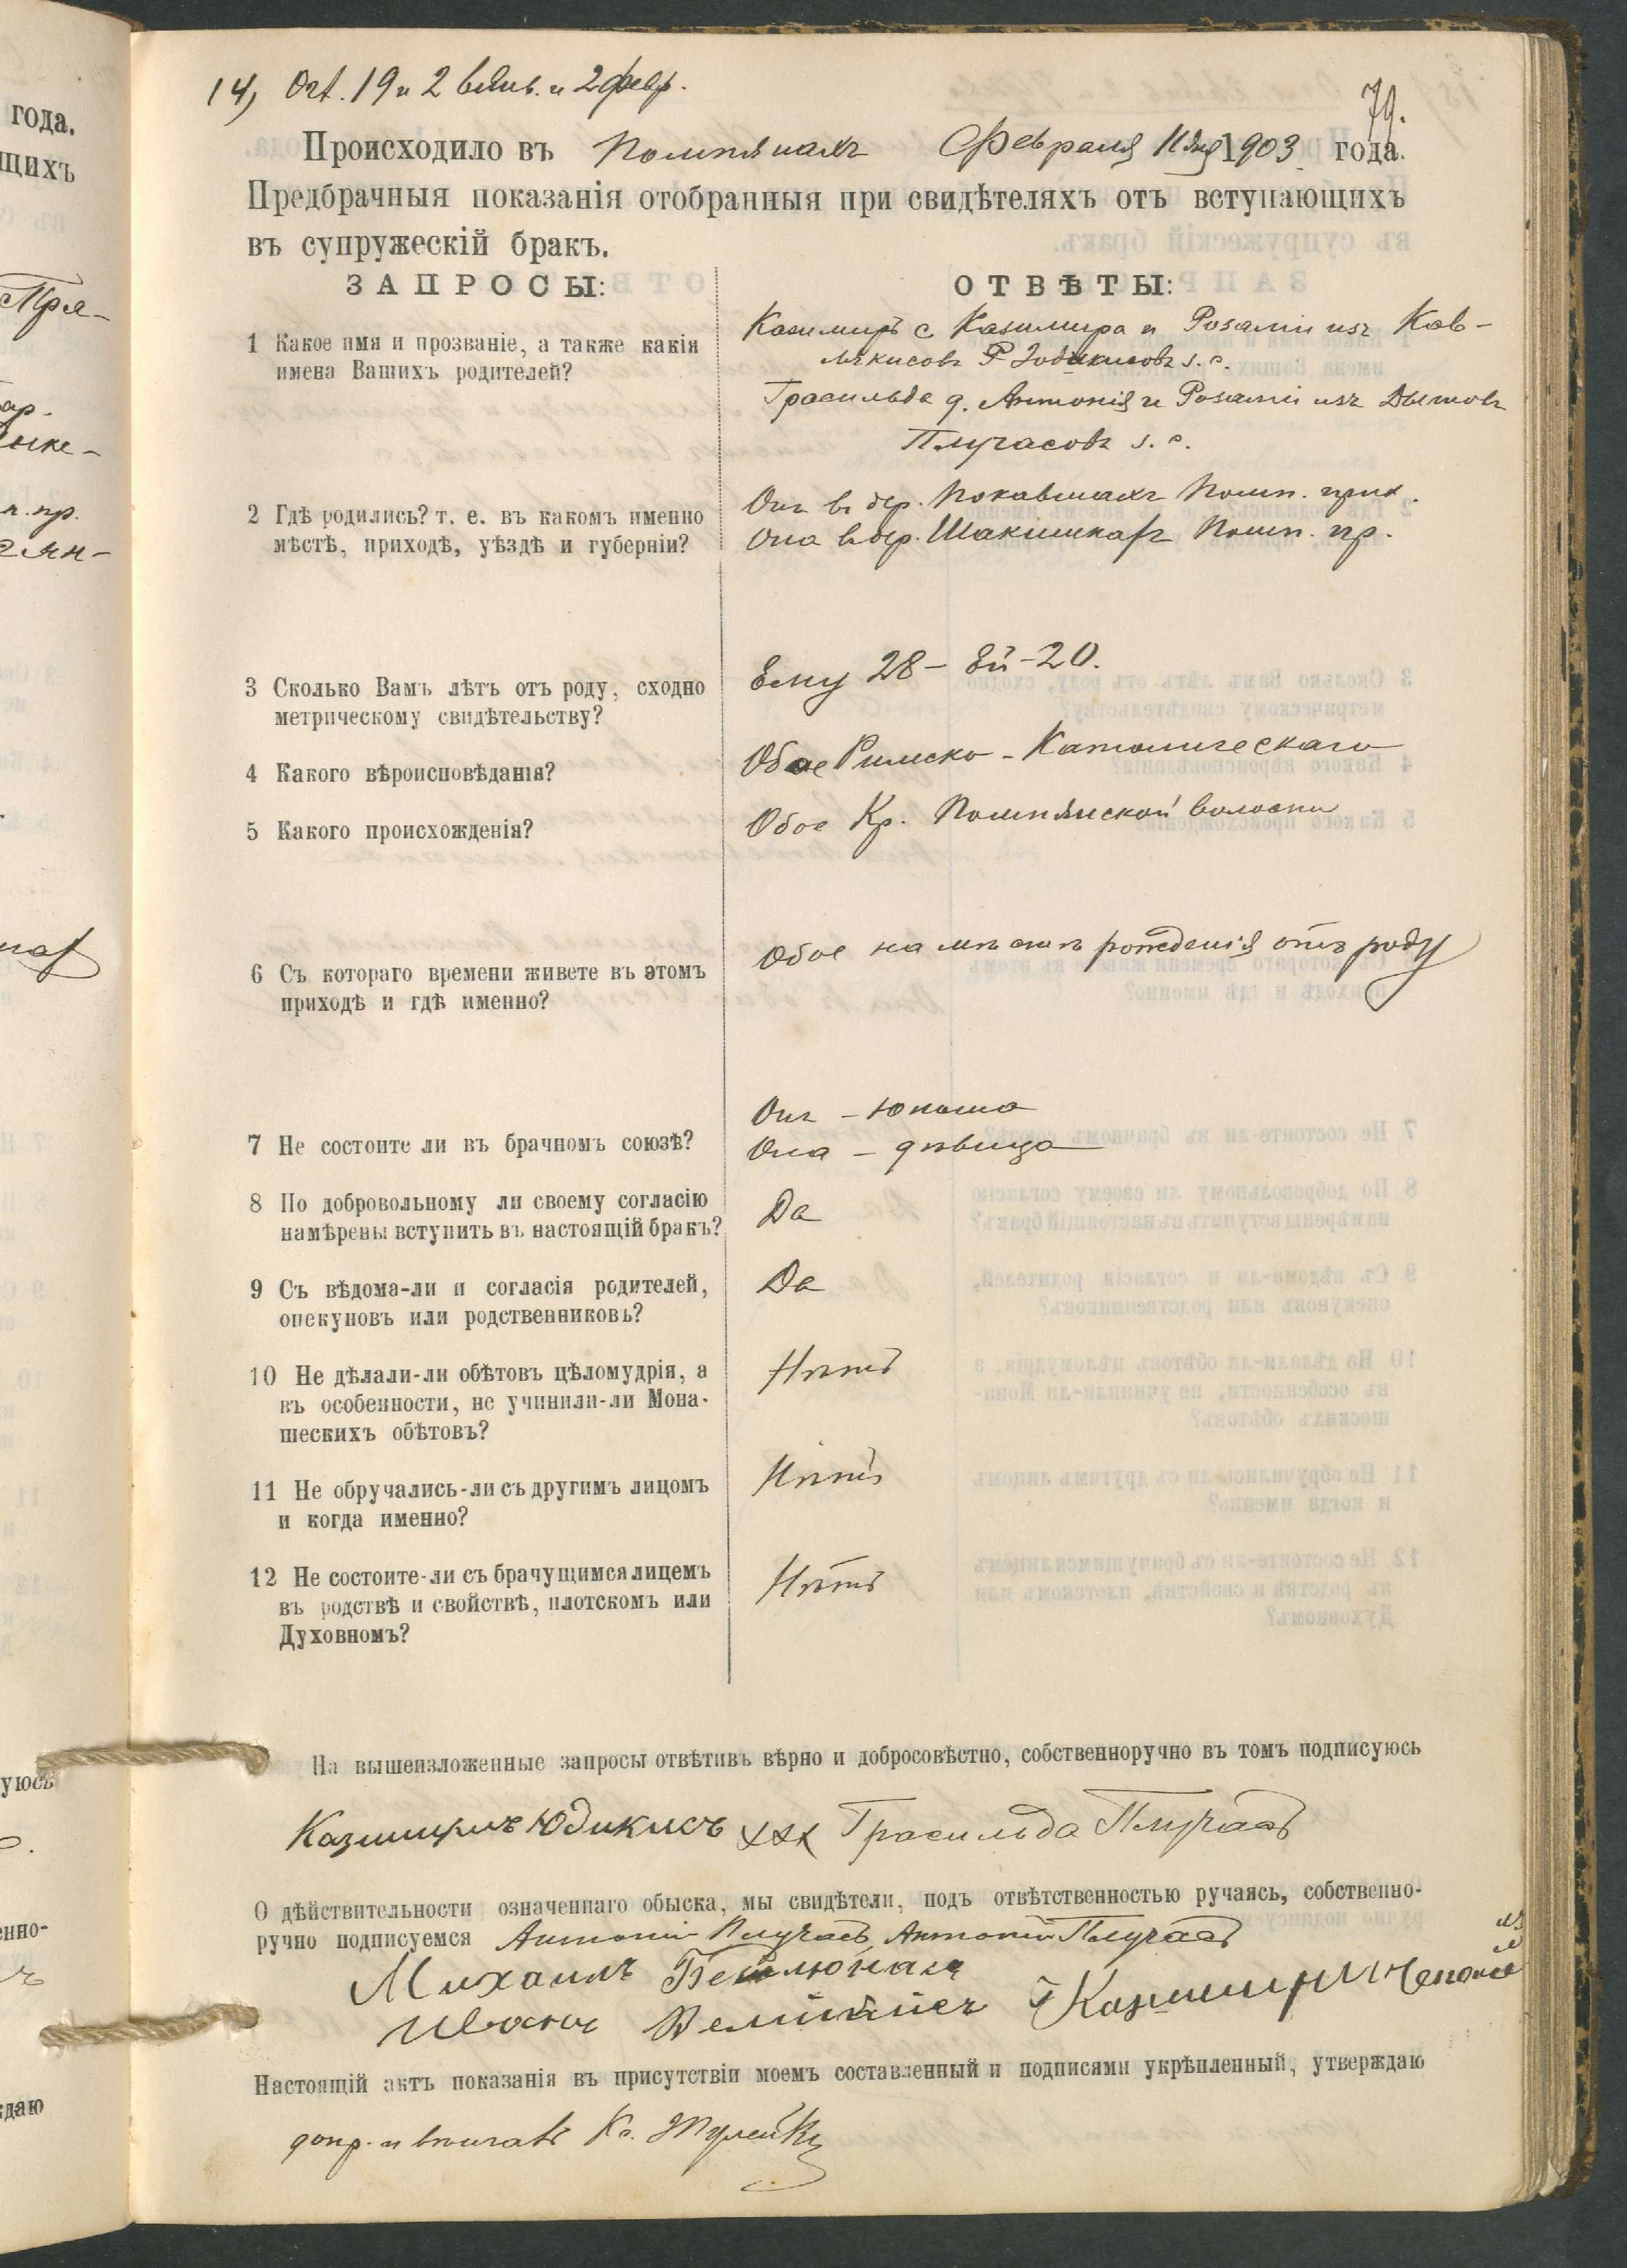 года.
щихъ
14, Окт. 19 и 2 въ Янв. и 2 февр.
79.
Происходило въ Помпянахъ Февраля 11 дня 1903 года.
Предбрачныя показанія отобранныя при свидѣтеляхъ отъ вступающихъ
въ супружескій бракъ.
ЗАПРОСЫ: ОТВѢТЫ:
1 Какое имя и прозваніе, а также какія
имена Вашихъ родителей?
Казимиръ с. Казимира и Розаліи изъ Кав-
Юдикисовъ з. с.
Грасильда д. Антонія и Розаліи изъ
Плучасовъ з. с.
2 Гдѣ родились? т. е. въ какомъ именно
мѣстѣ, приходѣ, уѣздѣ и губерніи?
Онъ въ дер. Покавшахъ Помп. прих.
Она въ дер. Шакишкахъ Помп. пр.
3 Сколько Вамъ лѣтъ отъ роду, сходно
метрическому свидѣтельству?
Ему 28 – Ей – 20.
4 Какого вѣроисповѣданія?
Обое Римско-Католическаго
5 Какого происхожденія?
Обое Кр. Помпянской волости
6 Съ котораго времени живете въ этомъ
приходѣ и гдѣ именно?
Обое на мѣстѣ рожденія отъ роду
7 Не состоите ли въ брачномъ союзѣ?
Онъ – юноша
Она – дѣвица
8 По добровольному ли своему согласію
намѣрены вступить въ настоящій бракъ?
Да
9 Съ вѣдома-ли и согласія родителей,
опекуновъ или родственниковъ?
Да
10 Не дѣлали-ли обѣтовъ цѣломудрія, а
въ особенности, не учинили-ли Мона-
шескихъ обѣтовъ?
Нѣтъ
11 Не обручались-ли съ другимъ лицомъ
и когда именно?
Нѣтъ
12 Не состоите-ли съ брачущимся лицемъ
въ родствѣ и свойствѣ, плотскомъ или
Духовномъ?
Нѣтъ
На вышеизложенные запросы отвѣтивъ вѣрно и добросовѣстно, собственноручно въ томъ подписуюсь
Казимиръ Юдикисъ xxx Грасильда Плучасъ
О дѣйствительности означеннаго обыска, мы свидѣтели, подъ отвѣтственностью ручаясь, собственно-
ручно подписуемся Антоній Плучасъ, Антоній Плучасъ
Михаилъ
Иванъ Казимиръ
Настоящій актъ показанія въ присутствіи моемъ составленный и подписями укрѣпленный, утверждаю
допр. и вѣнчавъ Кс.